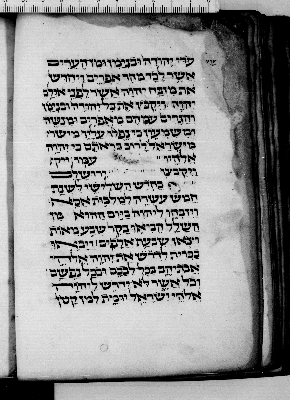 ארץ יהודה ובנימן ומן הערים
אשר לכד מהר אפרים ויחדש
את מזבח יהוה אשר לפני אולם
יהוה ויקבץ את כל יהודה ובנימן
והגרים עמהם מאפרים ומנשה
ומשמעון כי נפלו עליו מישר׳
מישראל לרב בראותם כי יהוה
אלהיו עמו
ויקבצו ירושלם
בחדש השלישי לשנת
חמש עשרה למלכות אסא
ויזבחו ליהוה ביום ההוא מן
השלל הביאו בקר שבע מאות
וצאן שבעת אלפים ויבאו
בברית לדרוש את יהוה אלהי
אבתיהם בכל לבבם ובכל נפשם
וכל אשר לא ידרש ליהוה
אלהי ישראל יומת למן קטן